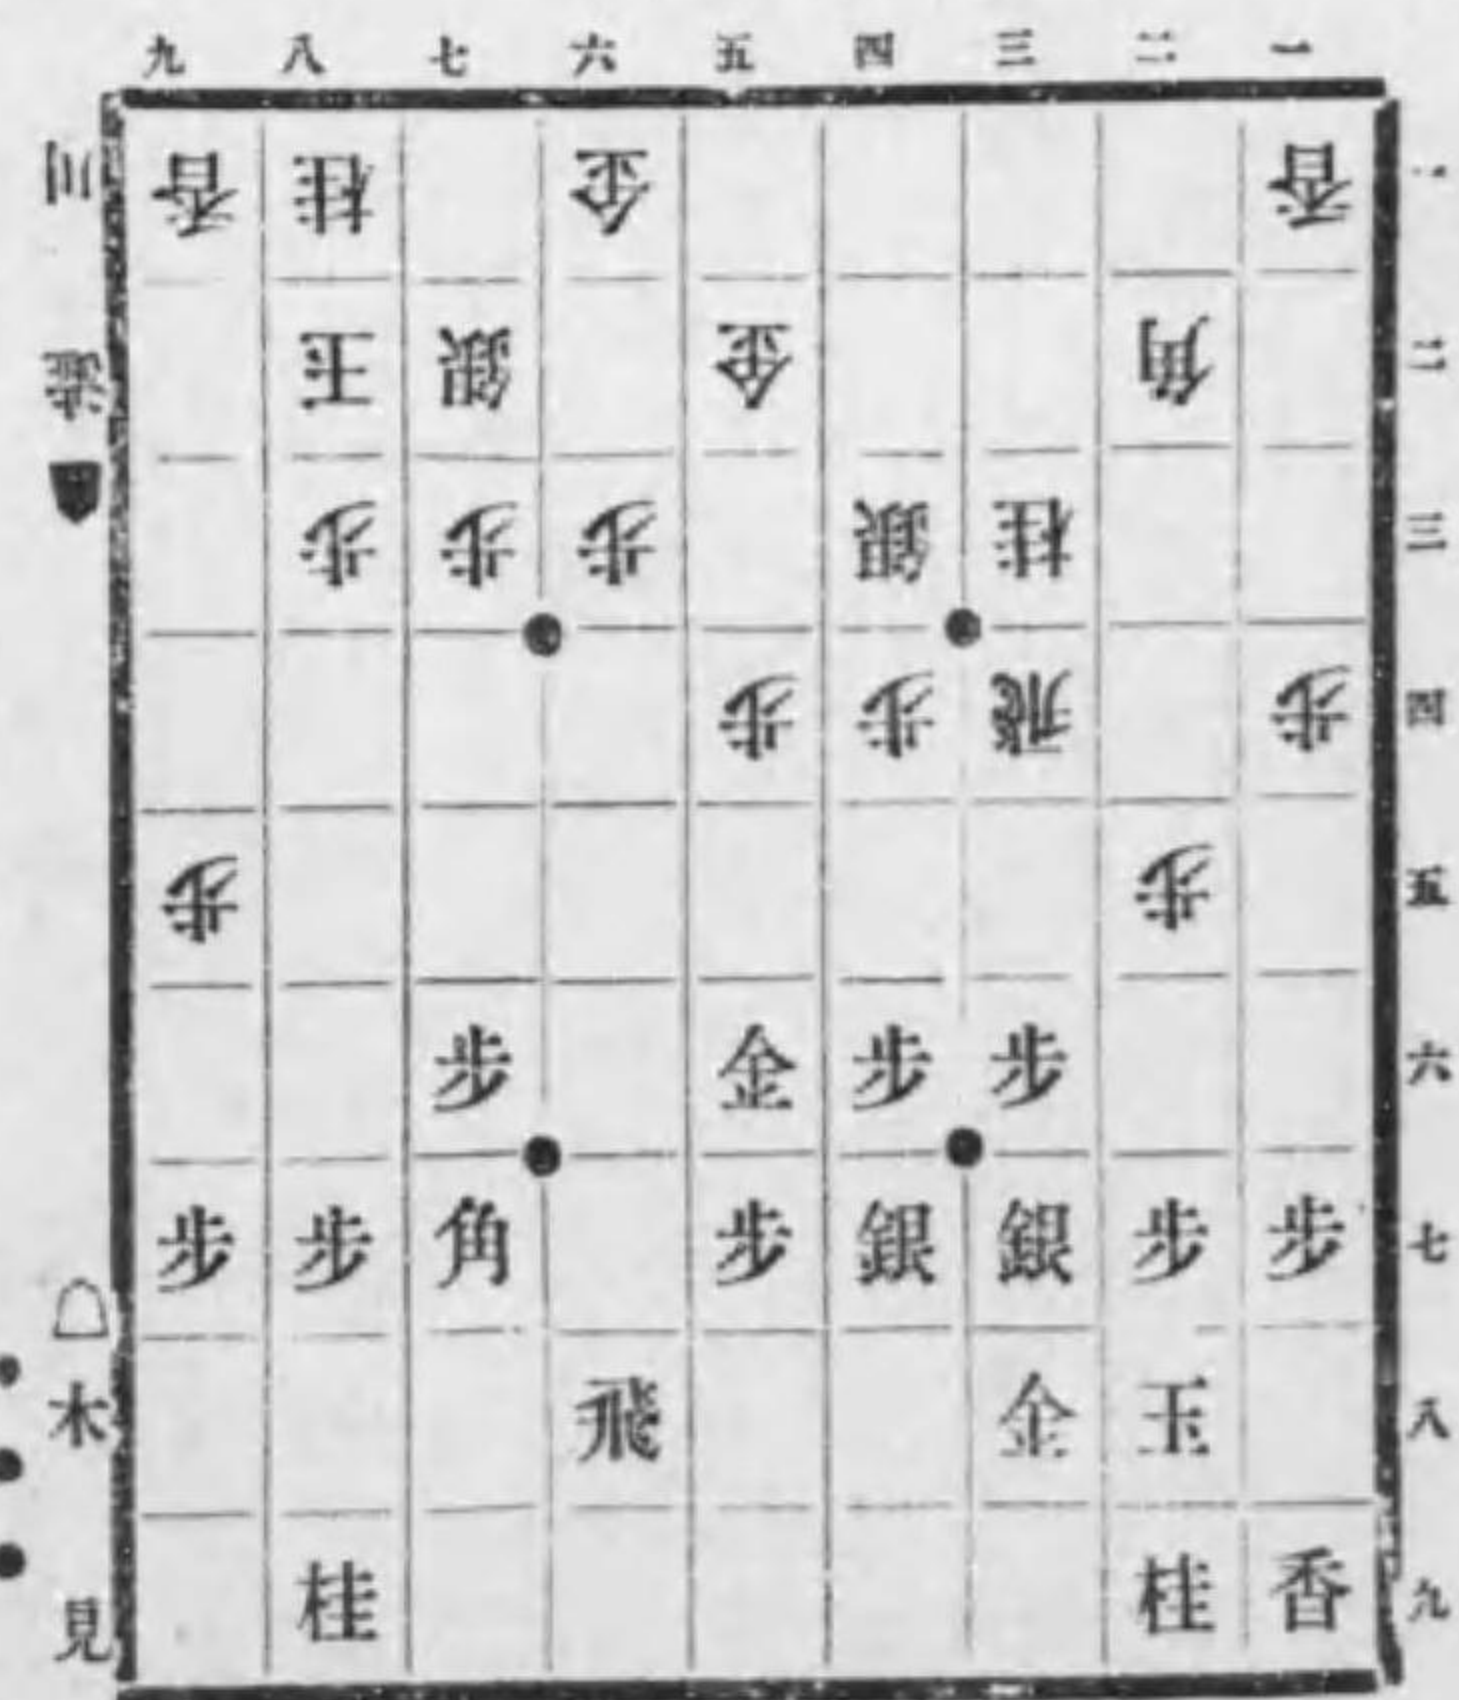 九 八 七 六 五 四 三 二 一
香 桂 金 香 一
玉 銀 金 角 二
歩 歩 歩 銀 桂 三
歩 歩 飛 歩 四
歩 歩 五
歩 金 歩 歩 六
歩 歩 角 歩 銀 銀 歩 歩 七
飛 金 玉 八
桂 桂 香 九
木見